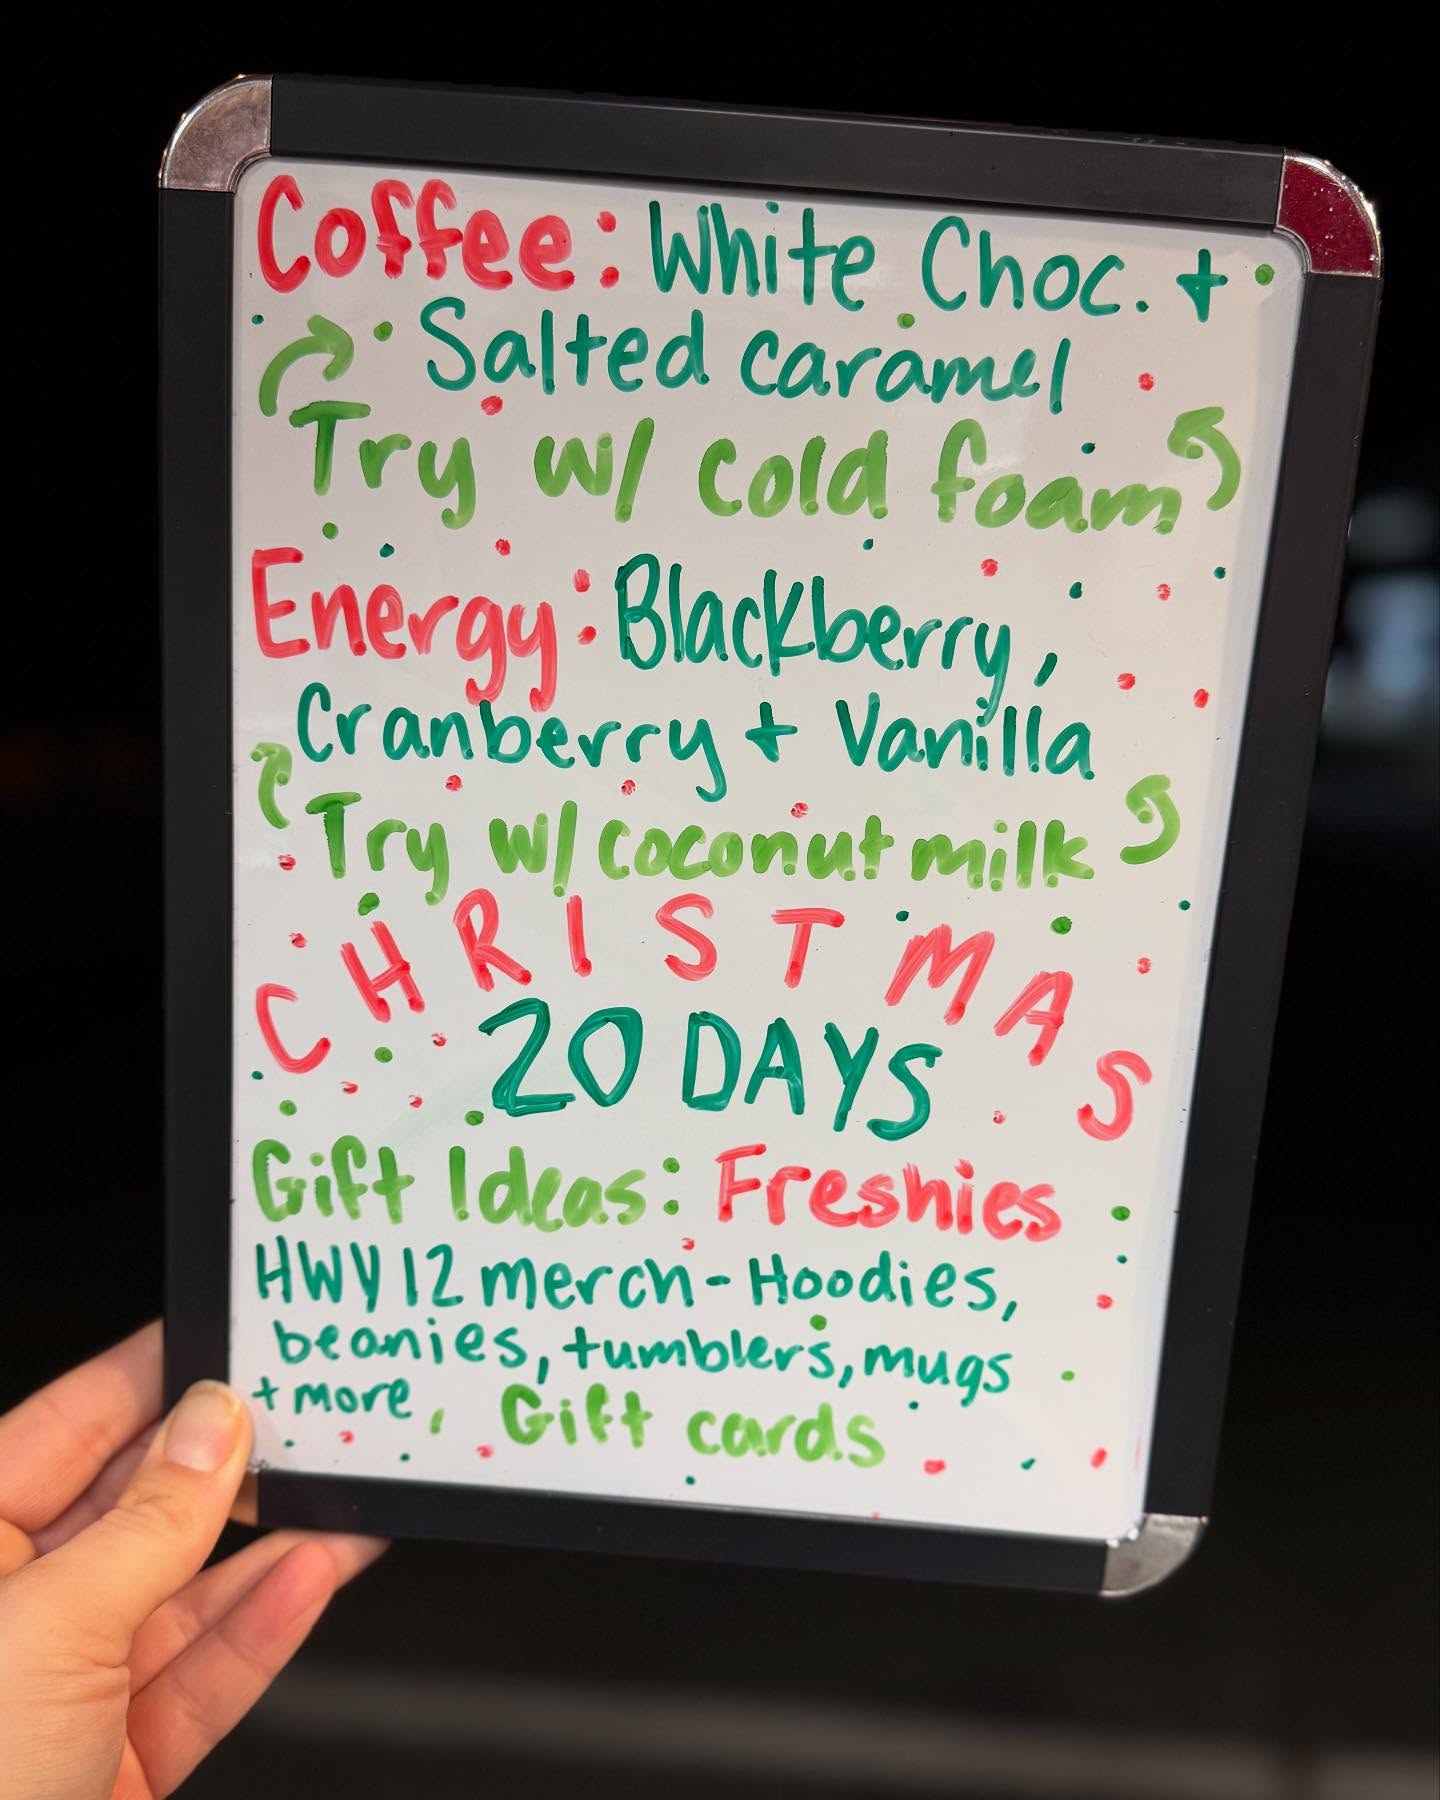 Coffee: White Choc. +
Salted caramel
Try w/ cold foam
Energy: Blackberry,
Cranberry + Vanilla
Try w/ coconut milk
CHRISTMAS
20 DAYS
Gift Ideas: Freshies
HWY 12 merch - Hoodies,
beanies, tumblers, mugs
+ more, Gift cards